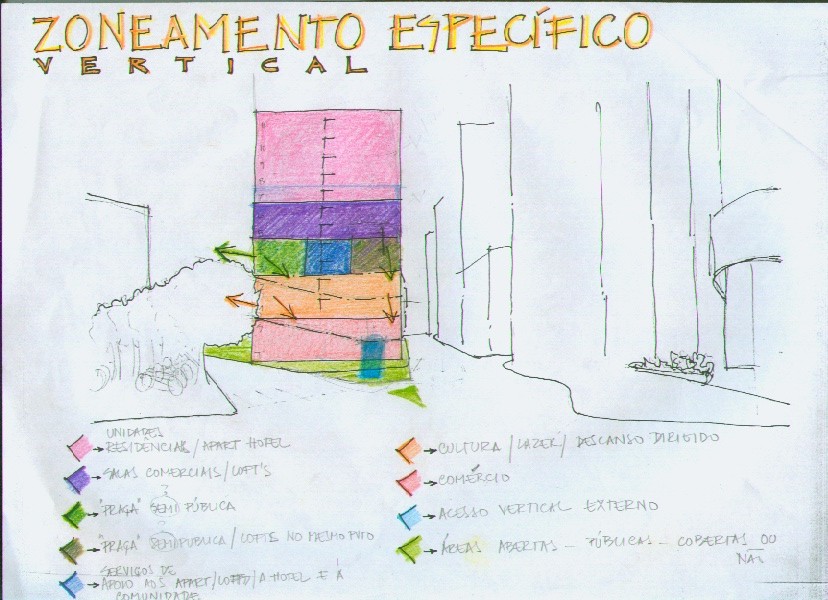 ZONEAMENTO ESPECÍFICO
VERTICAL
UNIDADES
RESIDÊNCIAIS / APART HOTEL
SALAS COMERCIAIS / LOFT'S
"PRAÇA" SEMI PÚBLICA
"PRAÇA" SEMI PUBLICA / LOFTS NO MESMO PVTO
SERVIÇOS DE
APOIO AOS APART/LOFTS/A HOTEL E À
COMUNIDADE
CULTURA / LAZER / DESCANSO DIRIGIDO
COMÉRCIO
ACESSO VERTICAL EXTERNO
ÁREAS ABERTAS - PÚBLICAS - COBERTAS OU
NÃO